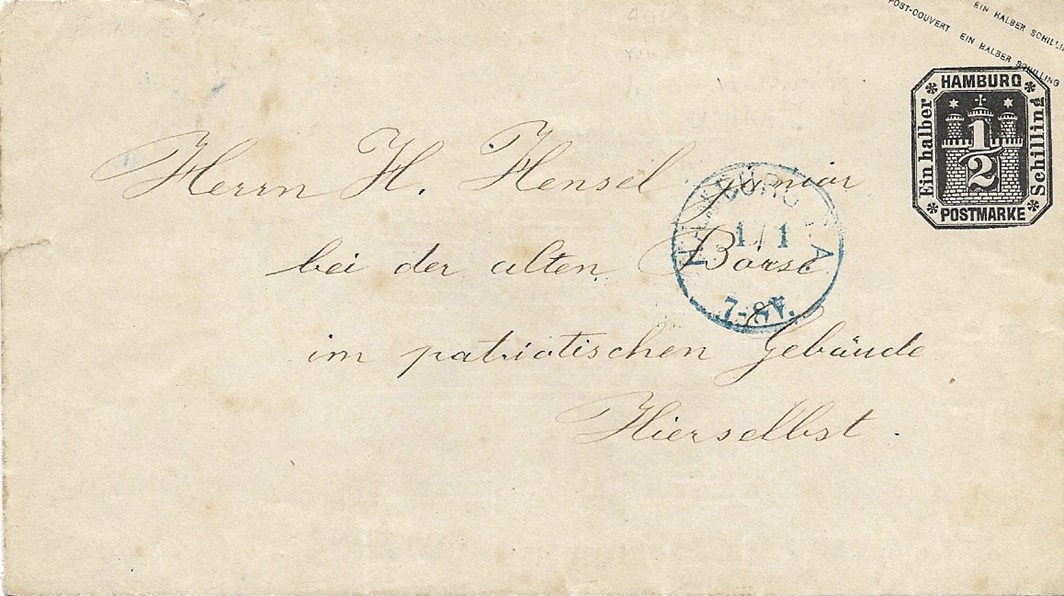 POST-COUVERT EIN HALBER SCHILLING
EIN HALBER SCHILLIN
HAMBURG
Ein halber
1/2
Schilling
POSTMARKE
Herrn H. Hensel junior
bei der alten Börse
im patriotischen Gebäude
Hierselbst.
HAMBURG I.A.
1/1
7-8V.